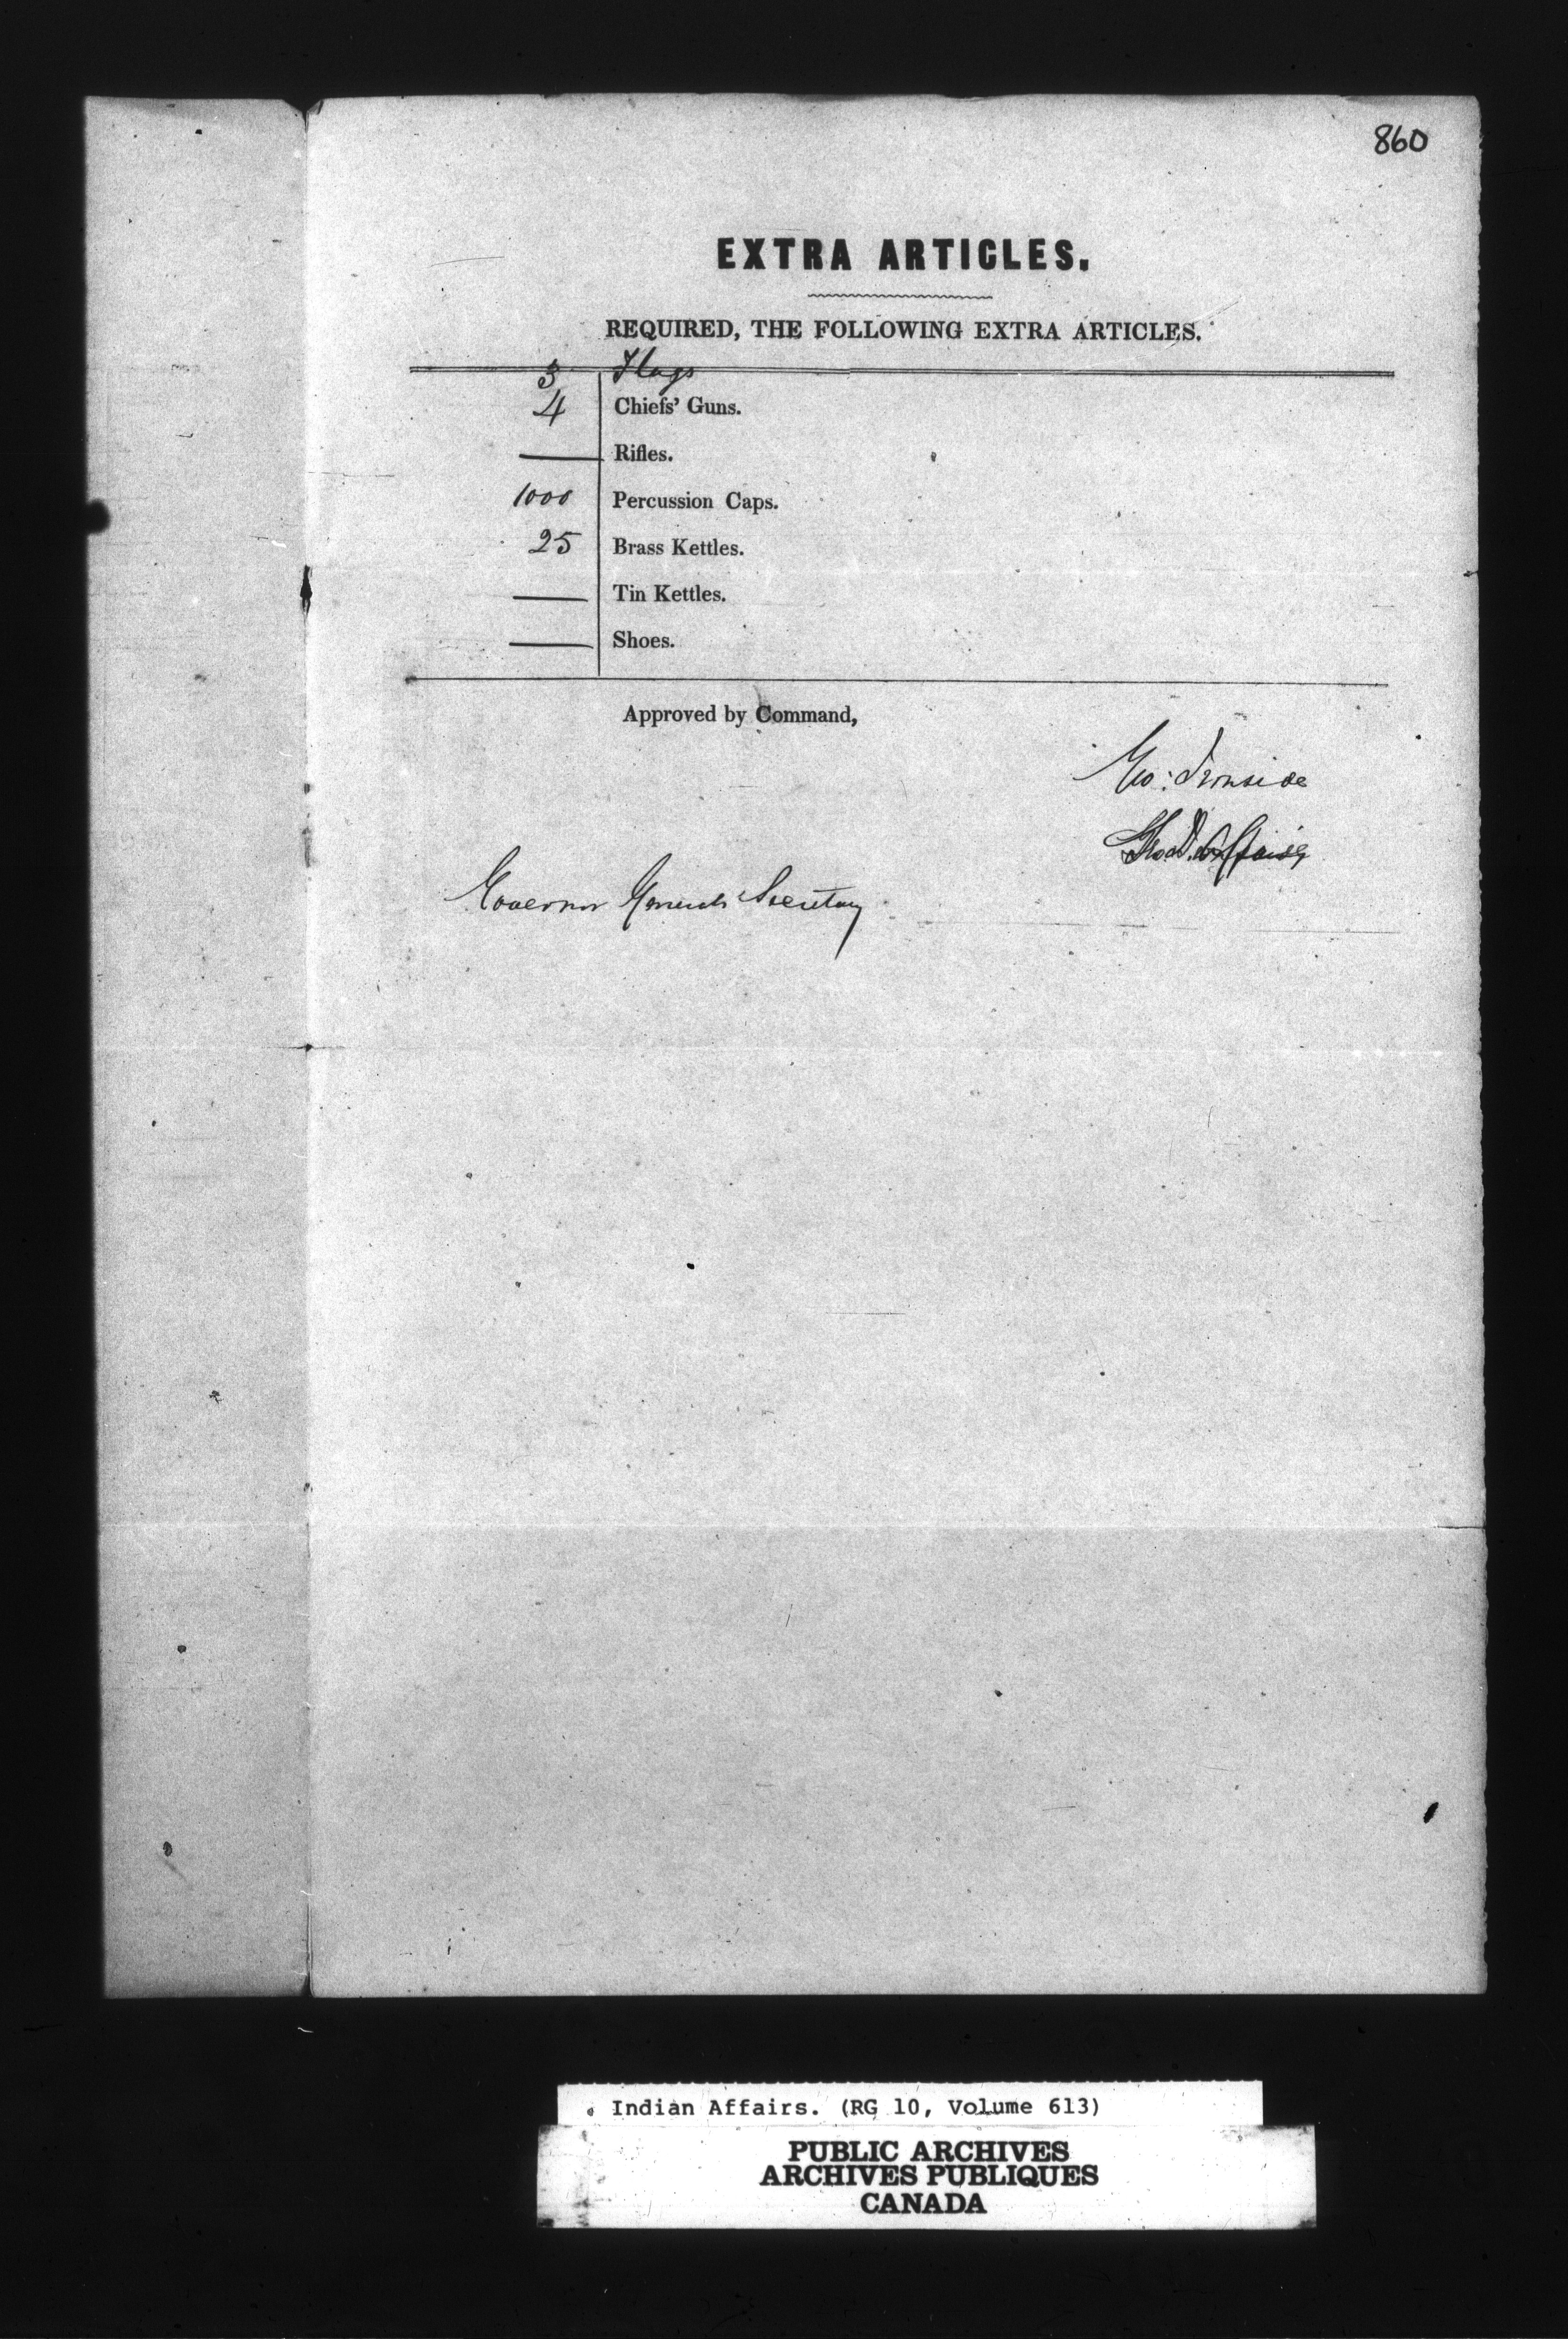 860
EXTRA ARTICLES.
REQUIRED, THE FOLLOWING EXTRA ARTICLES.
3 Flags
4 Chiefs' Guns.
— Rifles.
1000 Percussion Caps.
25 Brass Kettles.
— Tin Kettles.
— Shoes.
Approved by Command,
Geo: Ironside
Governor Generals Secretary
Indian Affairs. (RG 10, Volume 613)
PUBLIC ARCHIVES
ARCHIVES PUBLIQUES
CANADA